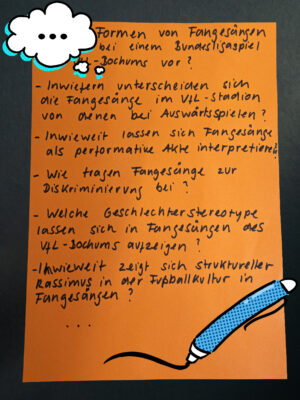 Formen von Fangesängen
bei einem Bundesligaspiel
-Bochums vor?
- Inwiefern unterscheiden sich
die Fangesänge im VfL-Stadion
von denen bei Auswärtsspielen?
- Inwieweit lassen sich Fangesänge
als performative Akte interpretieren?
- Wie tragen Fangesänge zur
Diskriminierung bei?
- Welche Geschlechterstereotype
lassen sich in Fangesängen des
VfL-Bochums aufzeigen?
- Inwieweit zeigt sich struktureller
Rassimus in der Fußballkultur in
Fangesängen?
...